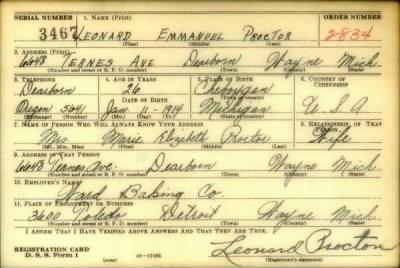 SERIAL NUMBER 1. NAME (Print) ORDER NUMBER
3467 LEONARD EMMANUEL PROCTOR 2834
(First) (Middle) (Last)
2. ADDRESS (Print)
6648 TERNES AVE Dearborn Wayne Mich.
(Number and street or R. F. D. number) (Town) (County) (State)
3. TELEPHONE 4. AGE IN YEARS 5. PLACE OF BIRTH 6. COUNTRY OF CITIZENSHIP
Dearborn 26 Cheboygan
DATE OF BIRTH
Oregon 5641 Jan - 11 - 1914 Michigan U.S.A
(Exchange) (Number) (Mo.) (Day) (Yr.) (State or country)
7. NAME OF PERSON WHO WILL ALWAYS KNOW YOUR ADDRESS 8. RELATIONSHIP OF THAT PERSON
Mrs. Marie Elizabeth Proctor Wife
(Mr., Mrs., Miss) (First) (Middle) (Last)
9. ADDRESS OF THAT PERSON
6648 Ternes Ave. Dearborn Wayne Mich.
(Number and street or R. F. D. number) (Town) (County) (State)
10. EMPLOYER'S NAME
Ward Baking Co.
11. PLACE OF EMPLOYMENT OR BUSINESS
3600 Toledo Detroit Wayne Mich.
(Number and street or R. F. D. number) (Town) (County) (State)
I AFFIRM THAT I HAVE VERIFIED ABOVE ANSWERS AND THAT THEY ARE TRUE.
REGISTRATION CARD
D. S. S. Form 1 16-17105 Leonard Proctor
(Registrant's signature)